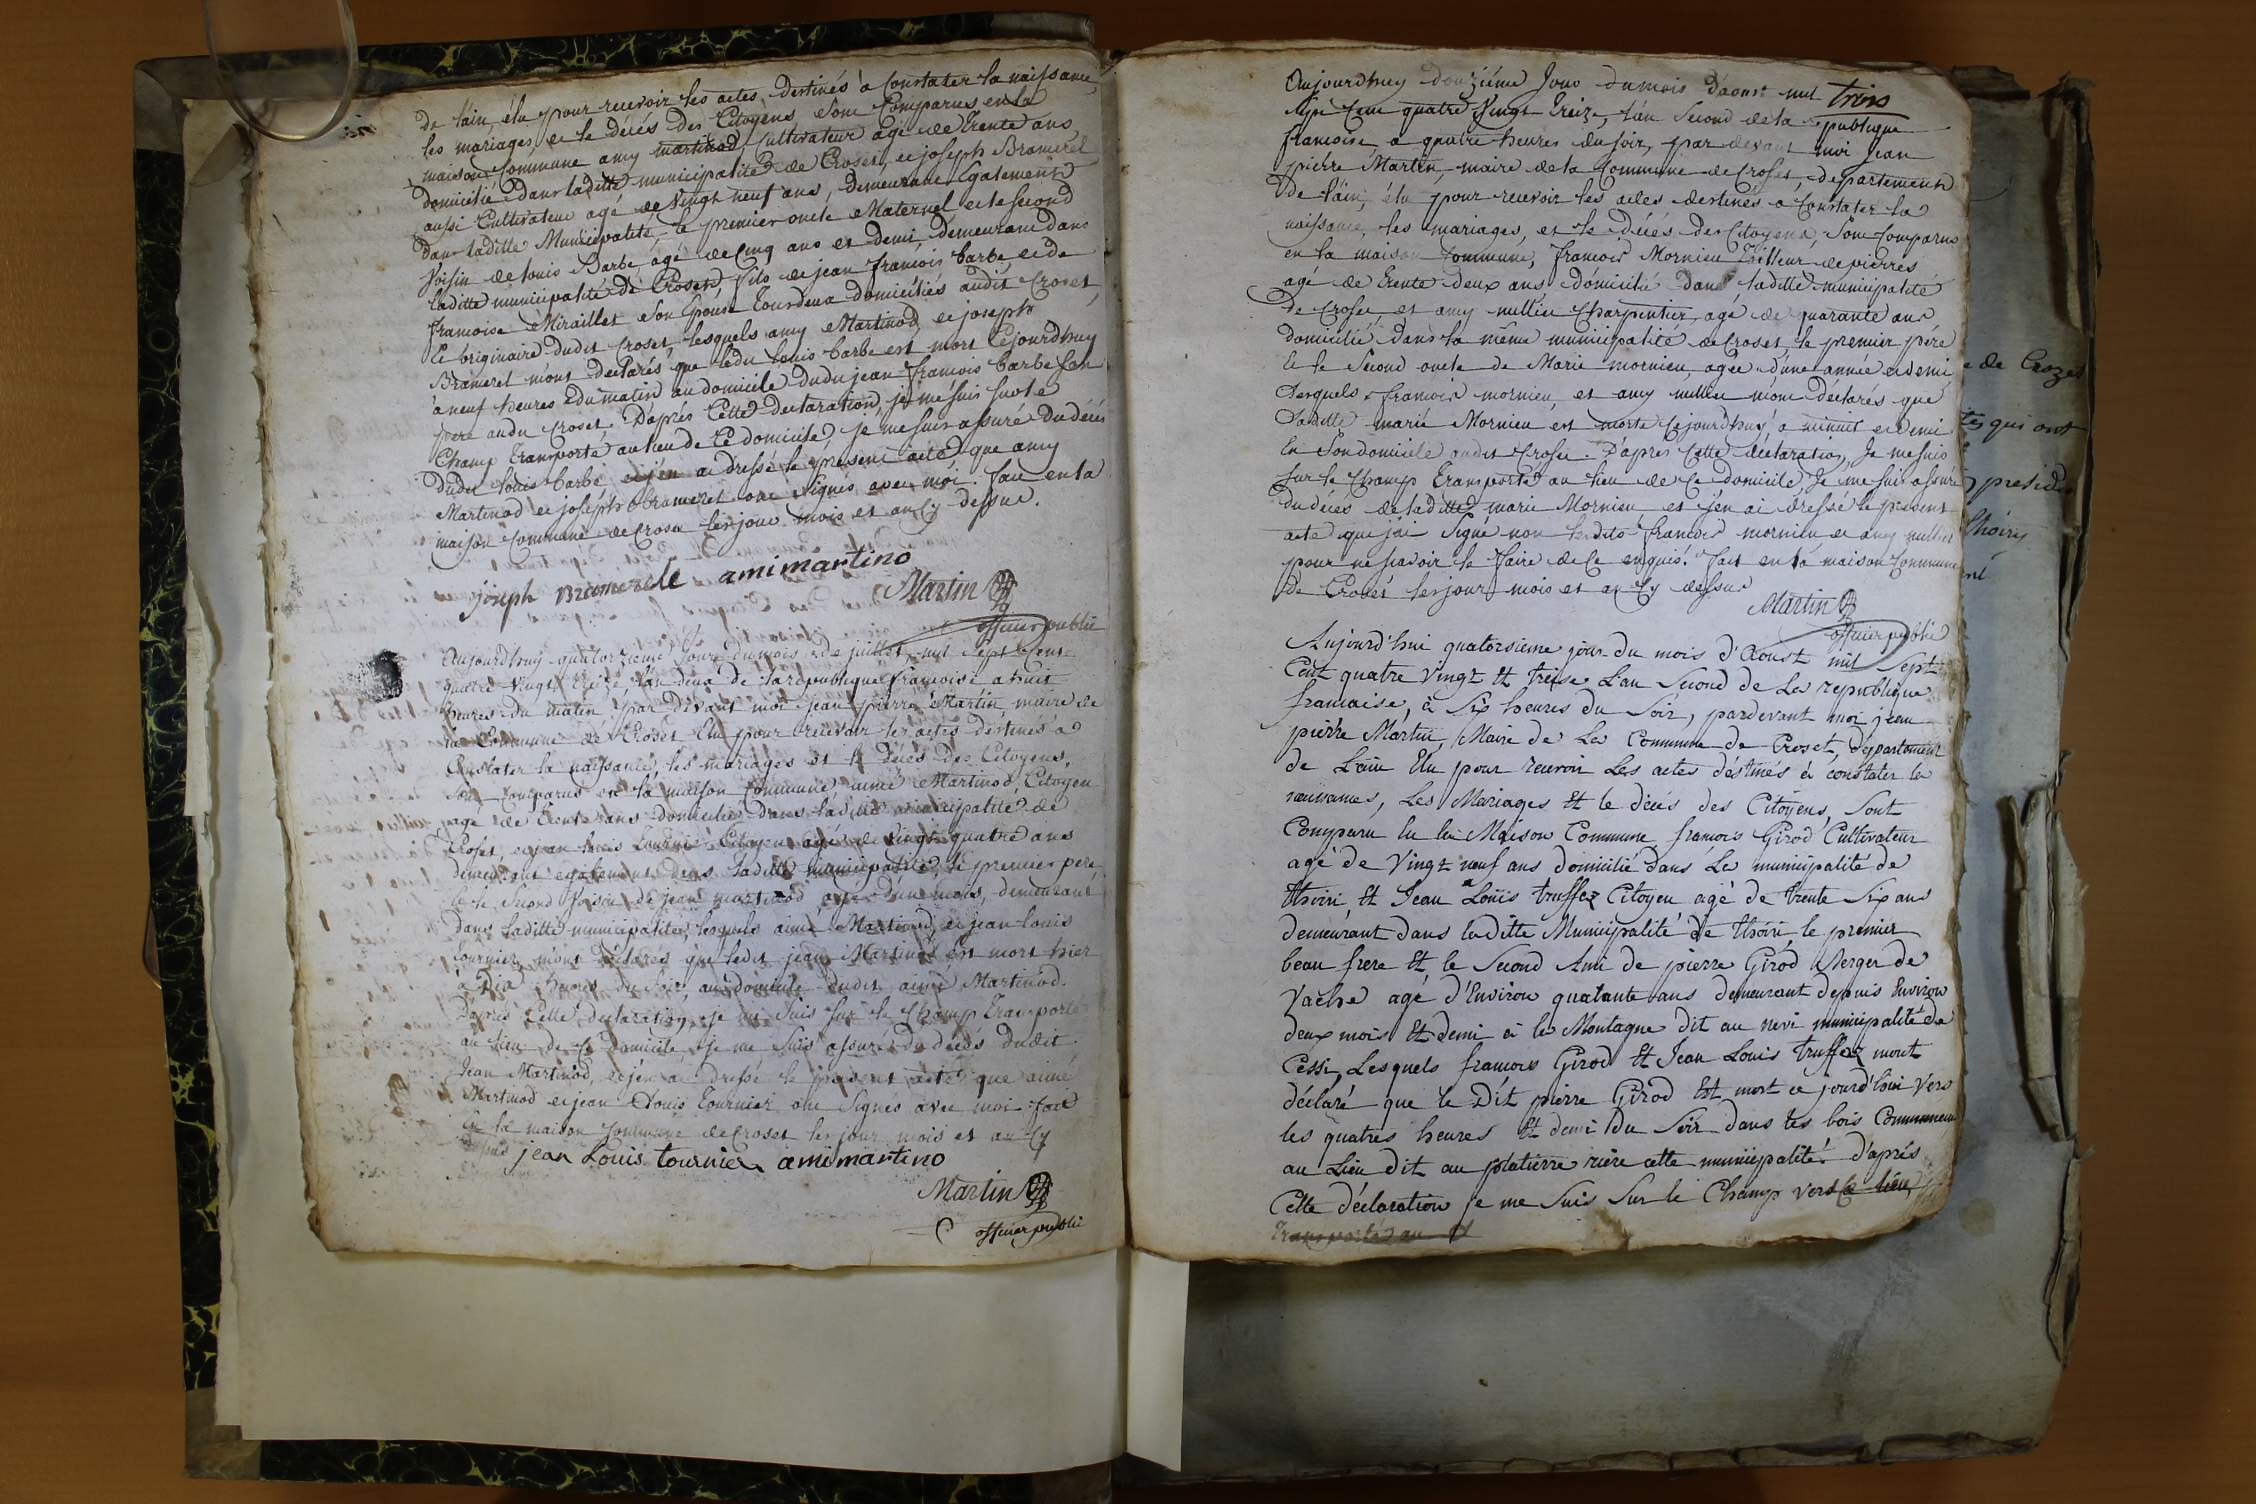 de l'ain, élu pour recevoir les actes, destinés à Constater la naissance,
les mariages, et le décés des Citoyens, sont Comparus en la
maison Commune amy martinod Cultivateur agé de trente ans,
domicilié dans laditte municipalité de Croset, et joseph Brameret
aussi Cultivateur agé de Vingt neuf ans, demeurant Egalement
dans laditte Municipalité, le premier oncle Maternel et le second
Voisin de louis Barbe, agé de Cinq ans et demi, demeurant dans
laditte municipalité de Croset, fils de jean francois barbe et de
francoise Miraillet son Epouse tous deux domiciliés audit Croset,
et originaire dudit Croset, lesquels amy Martinod et joseph
Brameret m'ont declarés que ledit louis barbe est mort Cejourdhuy
à neuf heures du matin au domicile dudit jean francois barbe son
pere audit Croset. D'après Cette declaration, je me suis sur le
Champ transporté au lieu de Ce domicile, je me suis assuré du décés
dudit louis barbe et j'en ai dressé le present acte que amy
Martinod et joseph Brameret ont signés avec moi. fait en la
maison Commune de Croset les jour mois et an Cy dessus.
joseph Bramerele amimartino
Martin
officier public
Aujourdhuy quatorzieme Jour du mois de juillet, mil Sept Cent
quatre Vingt treize, l'an deux de la republique francoise a huit
heures du matin, par devant moi jean pierre Martin, maire de
la Commune de Croset Elu pour recevoir les actes destinés a
Constater la naissance, les mariages et le décés des Citoyens,
sont Comparus en la maison Commune, aimé Martinod, Citoyen
age de trente ans domicilié dans laditte municipalité de
Croset, et jean louis tournier Citoyen agé de vingt quatre ans
demeurant egalement dans laditte municipalité, le premier pere
et le second Voisin de jean martinod, agé d'un mois, demeurant
dans laditte municipalité, lesquels aimé Martinod, et jean louis
tournier m'ont déclarés que ledit jean Martinod est mort hier
à Dix heures du soir, au domicile dudit aimé Martinod.
D'après Cette declaration je me suis sur le Champ transporté
au lieu de Ce domicile, je me suis assuré du décés dudit
Jean Martinod, et j'en ai dressé le present acte que aimé
Martinod et jean Louis tournier ont signés avec moi fait
En la maison Commune de Croset les jour mois et an Cy
dessus jean Louis tournier amimartino
Martin
officier public
trois
Aujourdhuy douziéme Jour du mois d'aoust mil
sept Cent quatre Vingt treize, l'an second de la republique
francoise a quatre heures du soir, par devant moi Jean
pierre Martin, maire de la Commune de Croset, departement
De l'ain, élu pour recevoir les actes destinés a Constater la
naissance, les mariages, et le décés des Citoyens, sont Comparus
en la maison Commune, francois Mornieu tailleur de pierres
agé de trente deux ans domicilié dans laditte municipalité
de Croset, et amy mullier Charpentier, agé de quarante ans
domicilié dans la même municipalité de Croset, le premier pére
et le second oncle de Marie mornieu, agée d'une année et demi,
Lesquels francois mornieu, et amy mullier m'ont déclarés que
laditte marie Mornieu est morte Cejourdhuy a minuit et demi
En son domicile audit Croset. D'après Cette déclaration, Je me suis
sur le Champ transporté au lieu de Ce domicile, Je me suis assuré
du décés de laditte marie Mornieu, et j'en ai dressé le present
acte que j'ai signé non lesdits francois mornieu et amy mullier
pour ne savoir le faire de Ce enquis. fait en la maison Commune
de Croset les jour mois et an Cy dessus
Martin
officier public
Aujourd'hui quatorsieme jour du mois d'Aoust mil Sept
Cent quatre Vingt Et treise L'an Second de La république
francaise, à Six heures du Soir, pardevant moi jean
pierre Martin, Maire de La Commune de Croset, départoment
de L'ain Elu pour recevoir Les actes déstinés à constater la
naissances, Les Mariages Et le décés des Citoyens, Sont
Comparu En la Maison Commune, francois Girod Cultivateur
agé de Vingt neuf ans domicilié dans La municipalité de
thoiri, Et Jean Louis truffez Citoyen agé de trente Six ans
demeurant dans laditte Municipalité de thoiri, le premier
beau frere Et le Second Ami de pierre Girod Berger de
Vache agé d'Environ quatante ans demeurant depuis Environ
deux mois Et demi à la Montagne dit au nevi municipalité de
Cessi, Lesquels francois Girod Et Jean Louis truffez mont
déclaré que le Dit pierre Girod Est mort ce jourd'hui Vers
les quatres heures Et demi du Soir dans les bois Communeau
au Lieu dit au platierre riere cette municipalité. d'après
Cette déclaration je me Suis Sur le Champ vers Ce lieu,
transporté au d
e de Crozet
tes qui ont
preside
thoiry